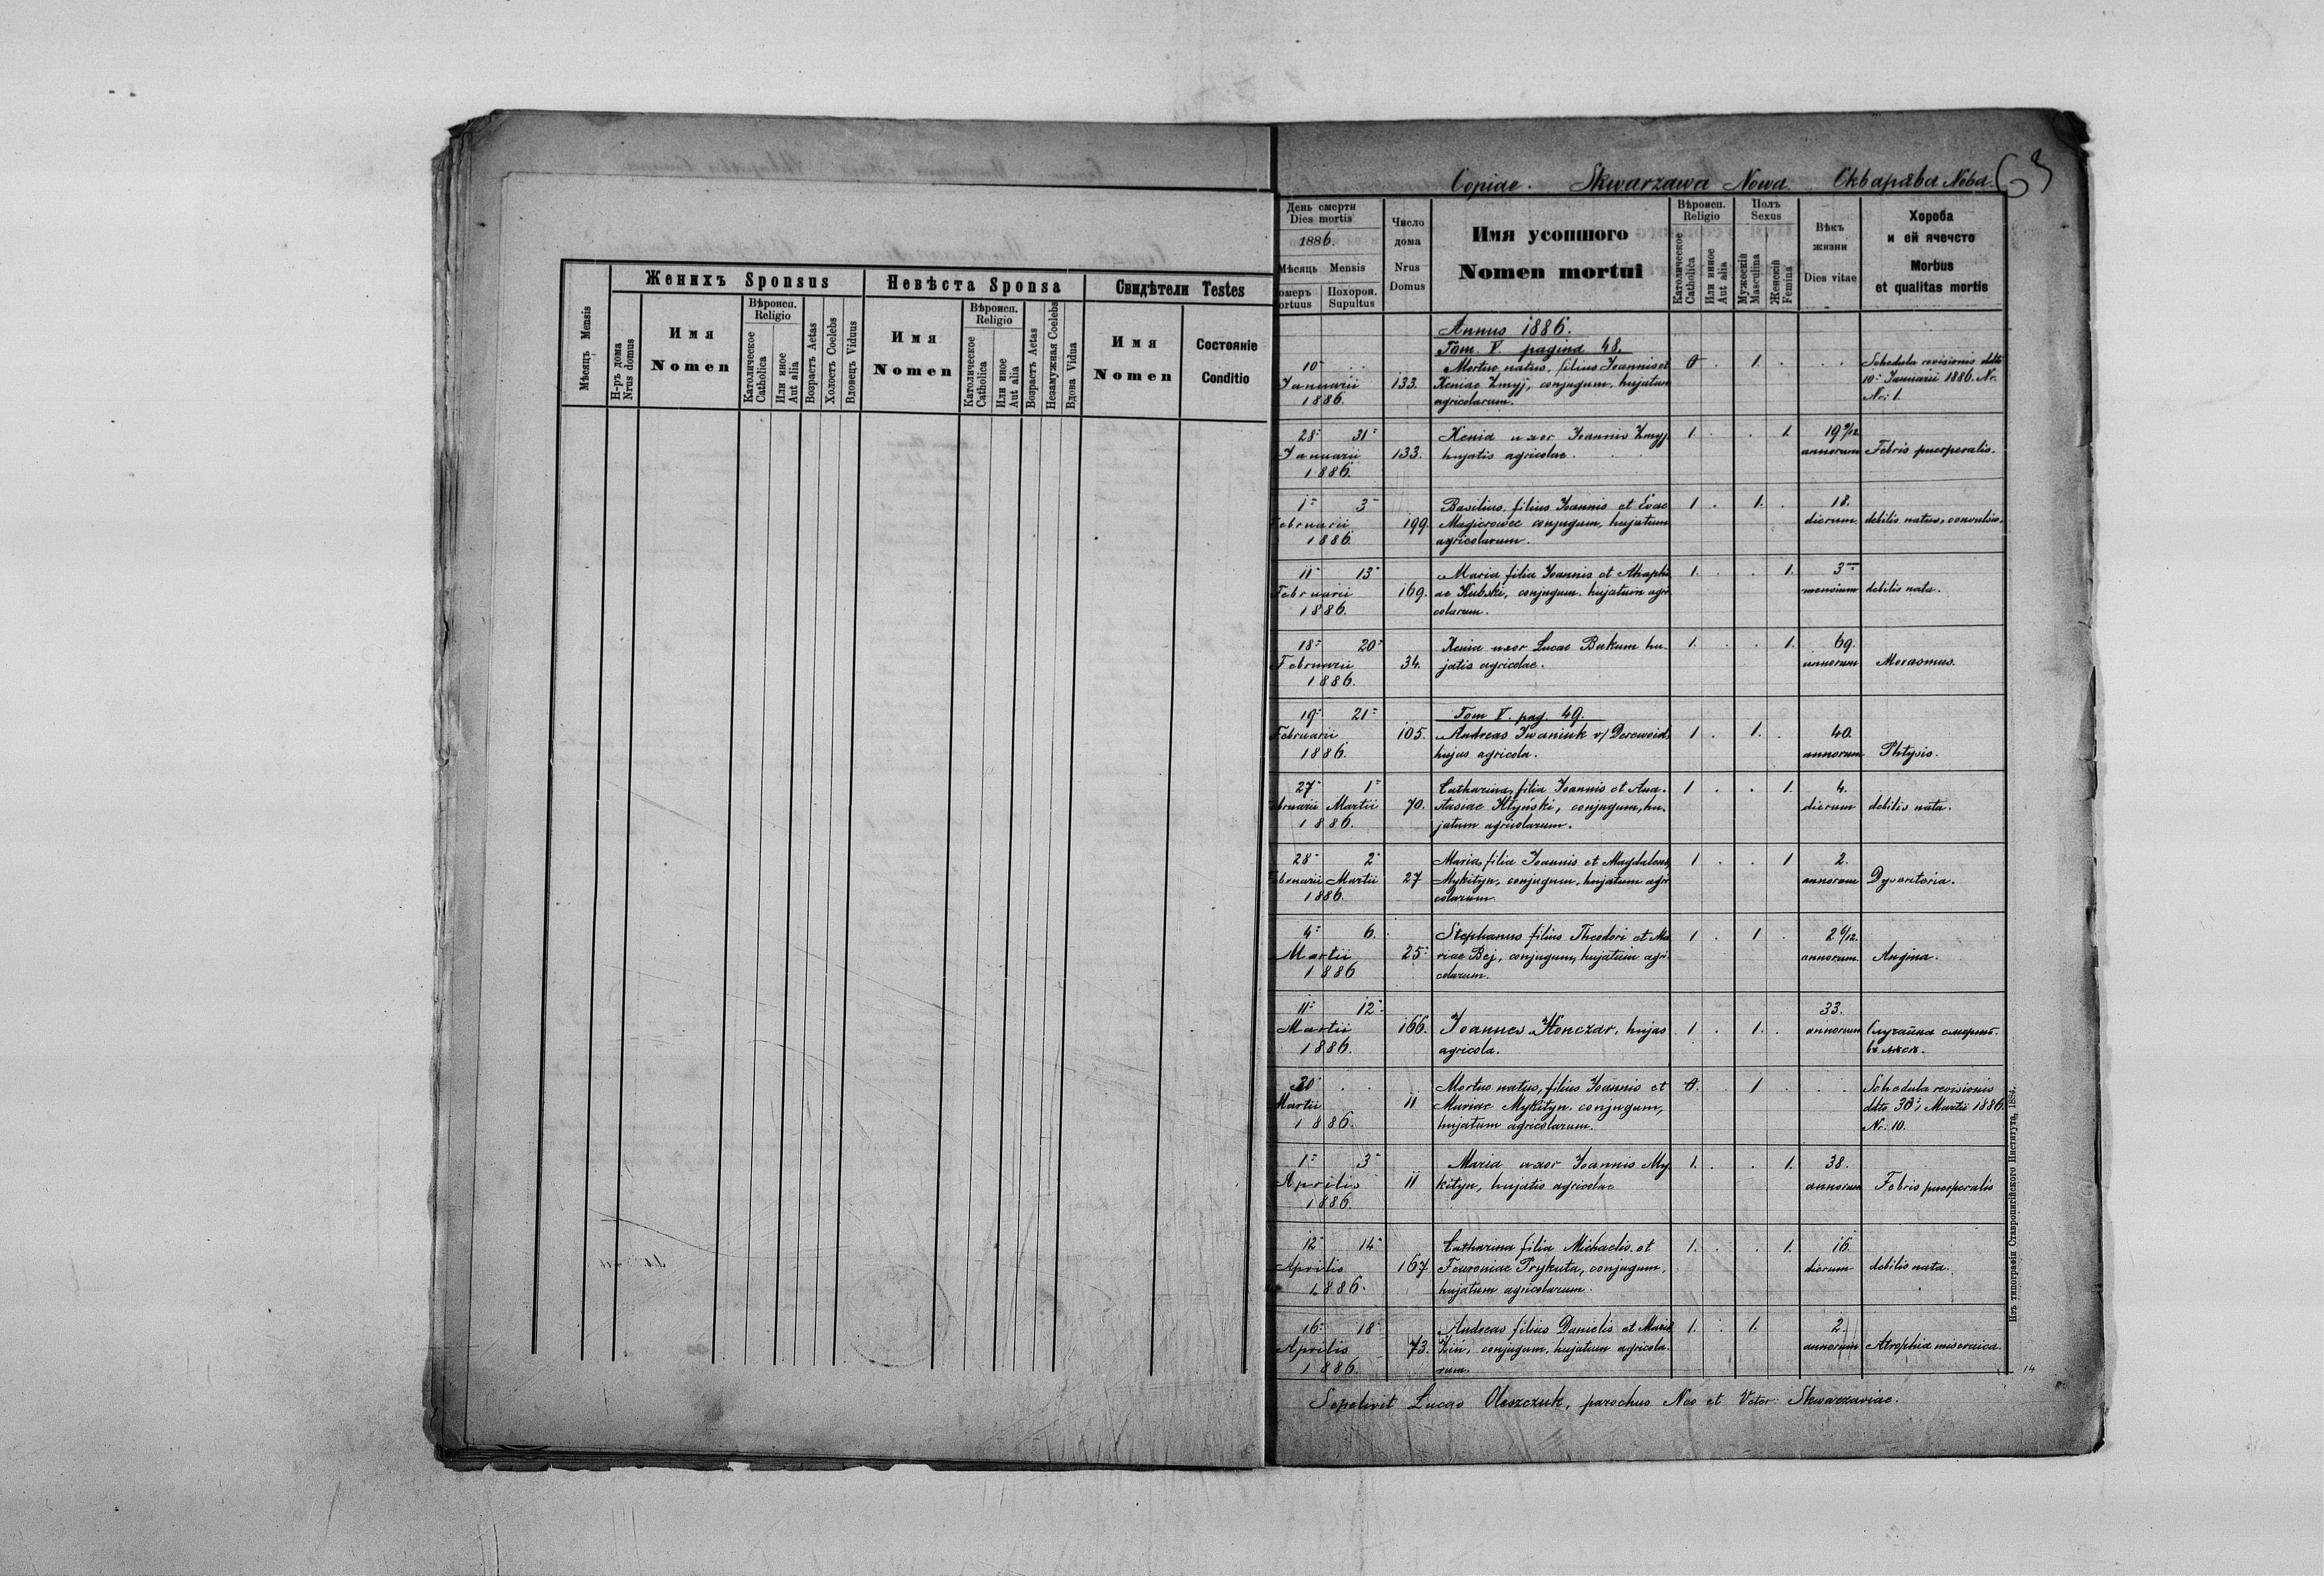 Женихъ Sponsus
Невѣста Sponsa
Свидѣтели Testes
Мѣсяцъ Mensis
Н-ръ дома
Nrus domus
Имя
Nomen
Вѣроисп.
Religio
Католическое
Catholica
Или иное
Aut alia
Возрастъ Aetas
Холостъ Coelebs
Вдовецъ Viduus
Имя
Nomen
Вѣроисп.
Religio
Католическое
Catholica
Или иное
Aut alia
Возрастъ Aetas
Незамужная Coelebs
Вдова Vidua
Имя
Nomen
Состояніе
Conditio
Copiae. Skwarzawa Nowa. Скварѣва Нова. 63
День смерти
Dies mortis
1886.
Мѣсяць Mensis
омеръ
ortuus
Похорон.
Supultus
Число
дома
Nrus
Domus
Имя усопшого
Nomen mortui
Вѣроисп.
Religio
Католическое
Catholica
Или инное
Aut alia
Полъ
Sexus
Мужескій
Masculina
Женскій
Femina
Вѣкъ
жизни
Dies vitae
Хороба
и ей ячечсто
Morbus
et qualitas mortis
Annus 1886.
Tom. V. pagina 48.
10 Mortuo natus, filius Joannis et 0 1. Schedula revisionis ddto
Januarii 133. Xeniae Zmyj, conjugum, hujatum 10 Januarii 1886. Nr.
1886. agricolarum. Nr: 1.
28 31 Xenia uxor Joannis Zmyj, 1. 1. 19 9/12
Januarii 133. hujatis agricolae. annorum Febris puerperalis.
1886.
1 3 Basilius, filius Joannis et Evae 1. 1. 18.
Februarii 199. Magierowec conjugum, hujatum dierum debilis natus, convulsio.
1886. agricolarum.
11 13 Maria filia Joannis et Ahaphi 1. 1. 3
Februarii 169. ae Kubski, conjugum, hujatum agri mensium debilis nata.
1886. colarum.
18 20 Xenia uxor Lucae Bakum hu- 1. 1. 69.
Februarii 34. jatis agricolae. annorum Marasmus.
1886.
19 21 Tom V. pag. 49.
Februarii 105. Andreas Iwaniuk v/ Derewoid, 1. 1. 40.
1886. hujas agricola. annorum Phtysis.
27 1 Catharina, filia Joannis et Ana- 1 1. 4.
bruarii Martii 70. stasiae Klyński, conjugum, hu- dierum debilis nata.
1886. jatum agricolarum.
28 2 Maria, filia Joannis et Magdalena, 1 1 2.
bruarii Martii 27 Mykityn, conjugum, hujatum agri annorum Dysenteria.
1886. colarum.
4 6. Stephanus filius Theodori et Ma 1 1 2 6/12.
Martii 25 riae Bej, conjugum, hujatum agri annorum. Angina.
1886 colarum.
11 12 33.
Martii 166. Joannes Honczar, hujas 1 1. annorum Случайна смерть
1886. agricola. въ лѣсѣ.
30 Mortuo natus, filius Joannis et 0. 1 Schedula revisionis
Martii 11 Mariae Mykityn, conjugum, ddto 30, Martii 1886.
1886. hujatum agricolarum. Nr: 10.
1 3 Maria uxor Joannis My 1. 1. 38.
Aprilis 11 kityn, hujatis agricolae annorum Febris puerperalis
1886.
12 14 Catharina filia Michaelis et 1. 1. 16.
Aprilis 167 Feuroniae Prykuta, conjugum, dierum debilis nata.
1886. hujatum agricolarum.
16 18 Andreas filius Danielis et Maria 1. 1. 2.
Aprilis 73. Zin, conjugum, hujatum agricola annorum Atrophia miseraica.
1886. rum.
14
Sepelivit Lucas Oleszczuk, parochus Neo et Veter. Skwarzaviae.
Изъ типографіи Ставропигійского Института, 1884.